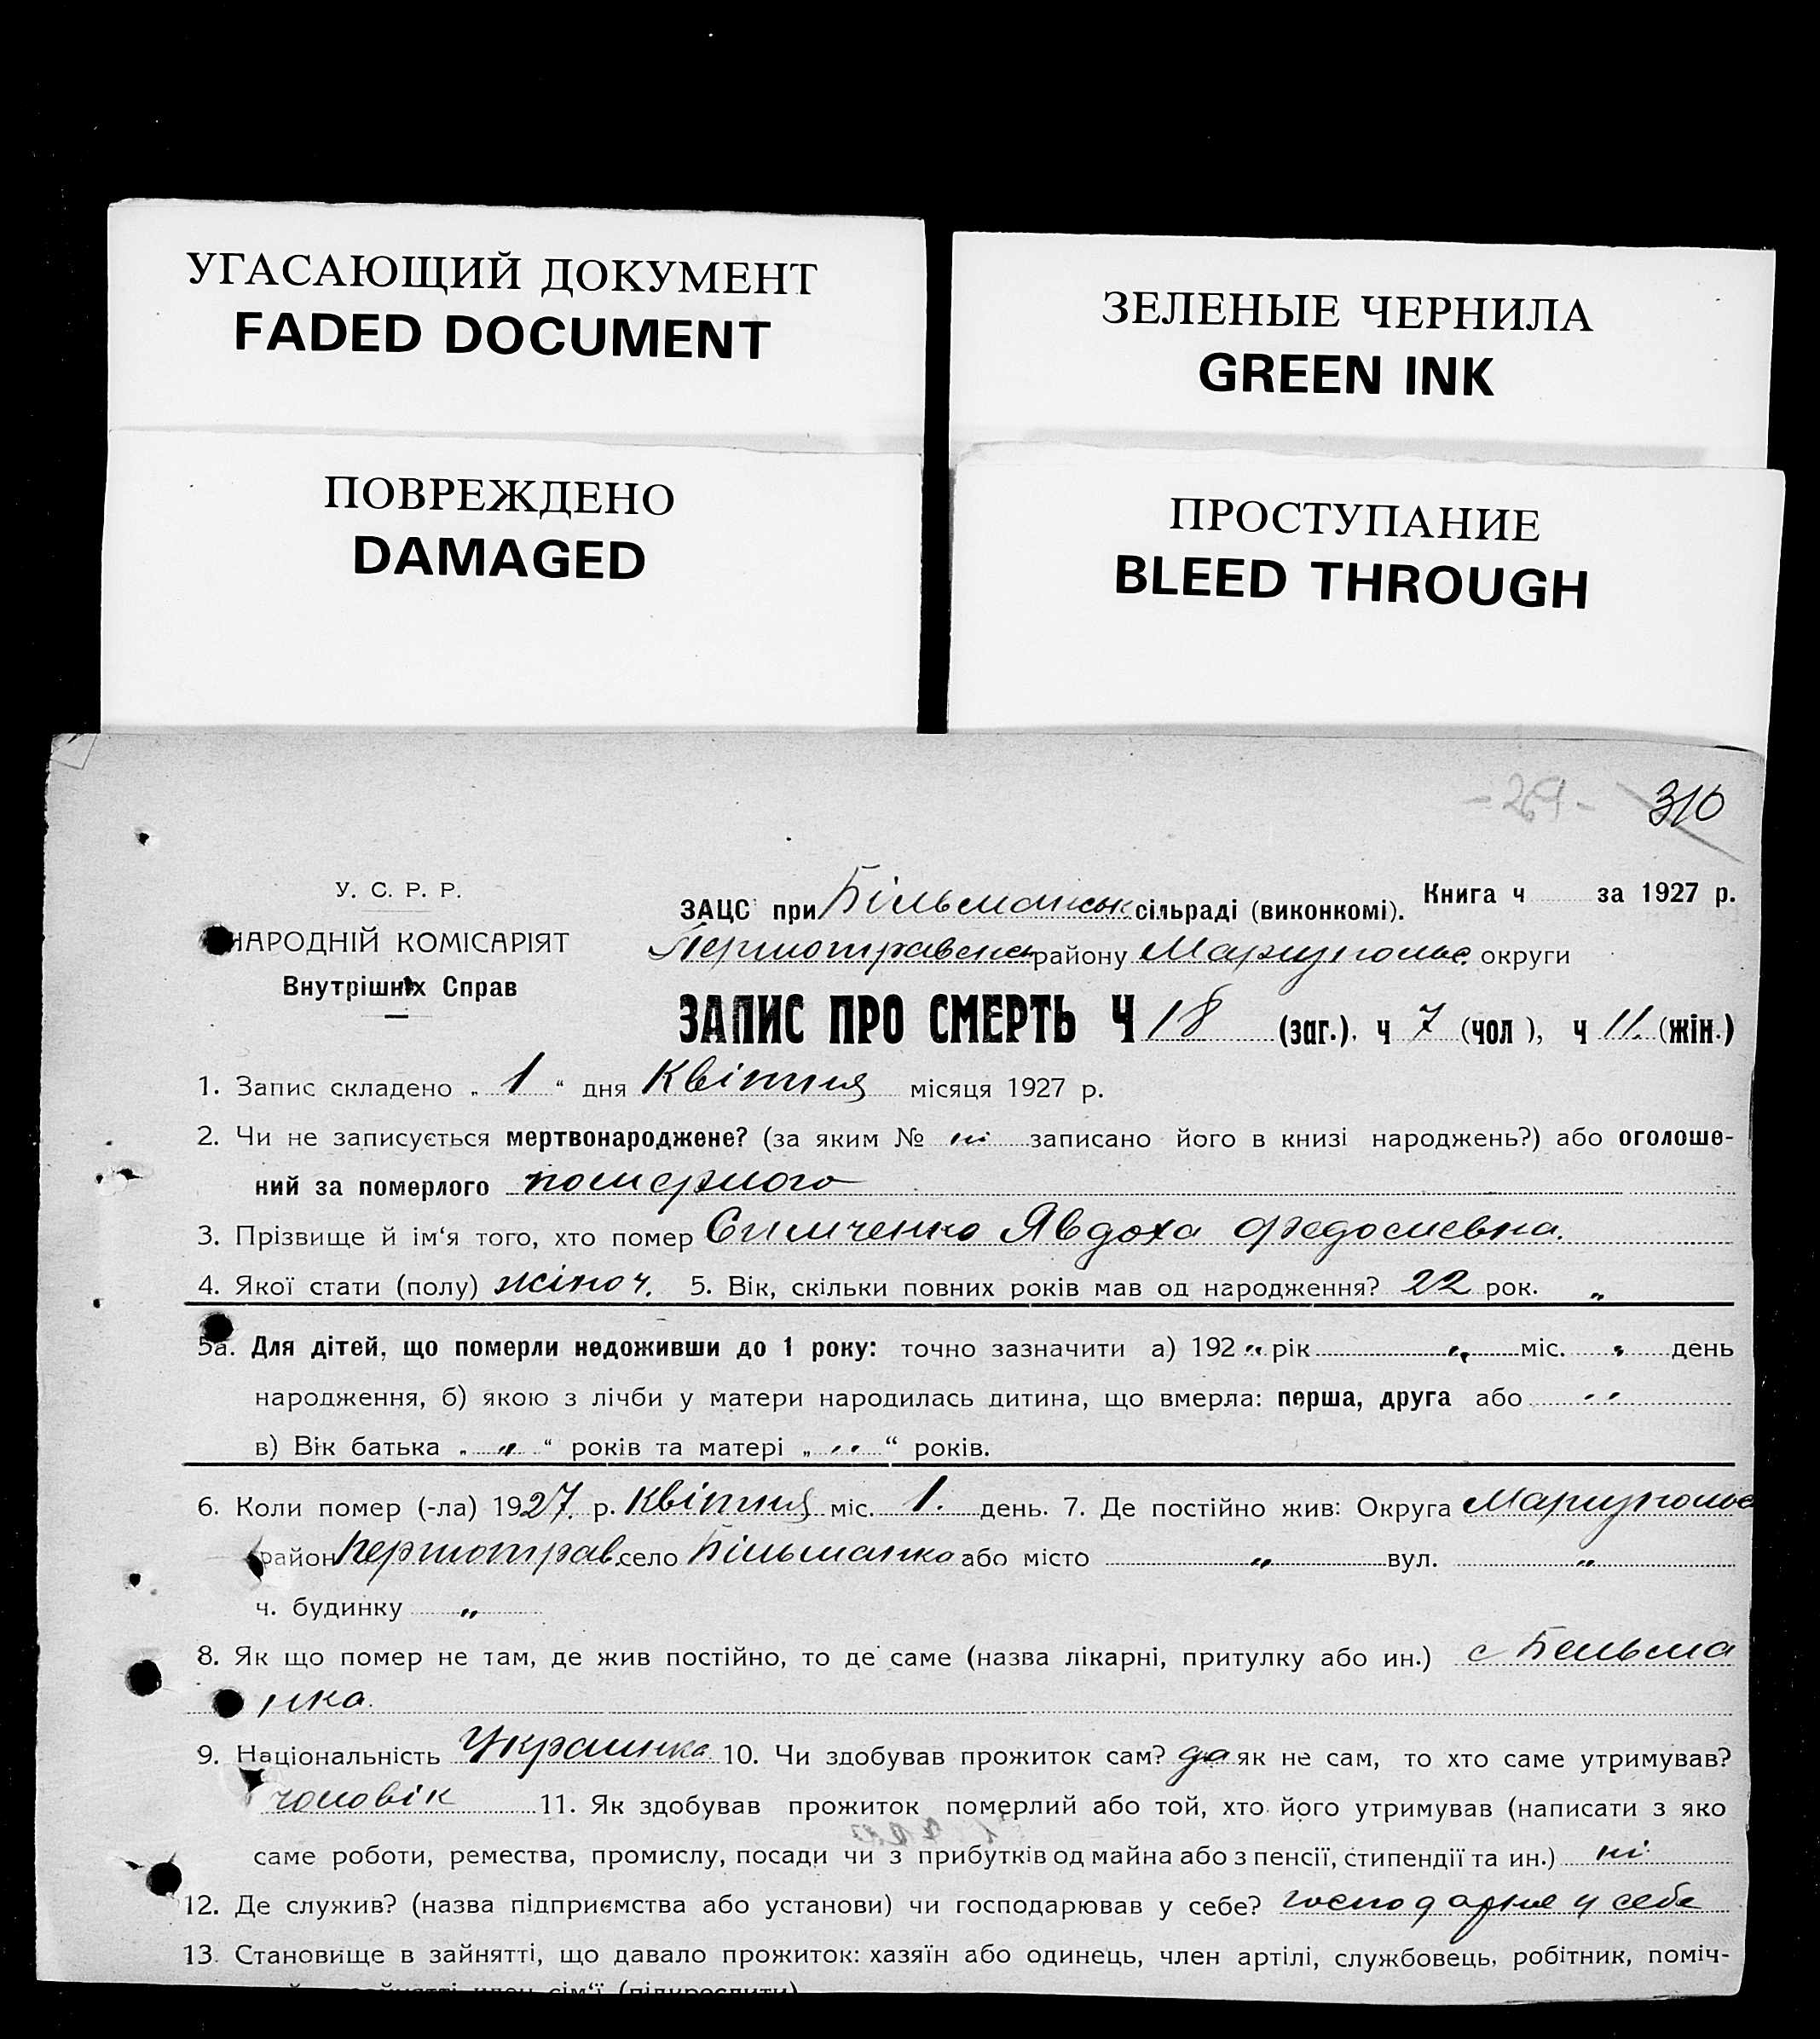 УГАСАЮЩИЙ ДОКУМЕНТ
FADED DOCUMENT
ЗЕЛЕНЫЕ ЧЕРНИЛА
GREEN INK
ПОВРЕЖДЕНО
DAMAGED
ПРОСТУПАНИЕ
BLEED THROUGH
310
У. С. Р. Р.
НАРОДНІЙ КОМІСАРІЯТ
Внутрішніх Справ
Книга ч за 1927 р.
ЗАЦС при Більманськ сільраді (виконкомі).
Першотравенсь району Маріупольс. округи
ЗАПИС ПРО СМЕРТЬ Ч 18 (заг.), ч 7 (чол), ч 11. (жін.)
1. Запис складено „ 1 “ дня Квітня місяця 1927 р.
2. Чи не записується мертвонароджене? (за яким № ні записано його в книзі народжень?) або оголоше-
ний за померлого помермого
3. Прізвище й ім‘я того, хто помер Симченко Явдоха Федосиевна.
4. Якої стати (полу) жіноч. 5. Вік, скільки повних років мав од народження? 22 рок. „
5а. Для дітей, що померли недоживши до 1 року: точно зазначити а) 192 „ рік „ міс. „ день
народження, б) якою з лічби у матери народилась дитина, що вмерла: перша, друга або „
в) Вік батька „ „ “ років та матері „ „ “ років.
6. Коли помер (-ла) 1927. р. Квітня міс. 1. день. 7. Де постійно жив: Округа Маріупольс
район Першотрав. село Більманка або місто „ вул. „
ч. будинку „
8. Як що помер не там, де жив постійно, то де саме (назва лікарні, притулку або ин.) с Бельма
нка.
9. Національність Украинка 10. Чи здобував прожиток сам? да як не сам, то хто саме утримував?
чоловік 11. Як здобував прожиток померлий або той, хто його утримував (написати з яко
саме роботи, ремества, промислу, посади чи з прибутків од майна або з пенсії, стипендії та ин.) ні
12. Де служив? (назва підприємства або установи) чи господарював у себе? господарює у себе
13. Становище в зайнятті, що давало прожиток: хазяїн або одинець, член артілі, службовець, робітник, поміч-
член сім‘ї (підкреслити)